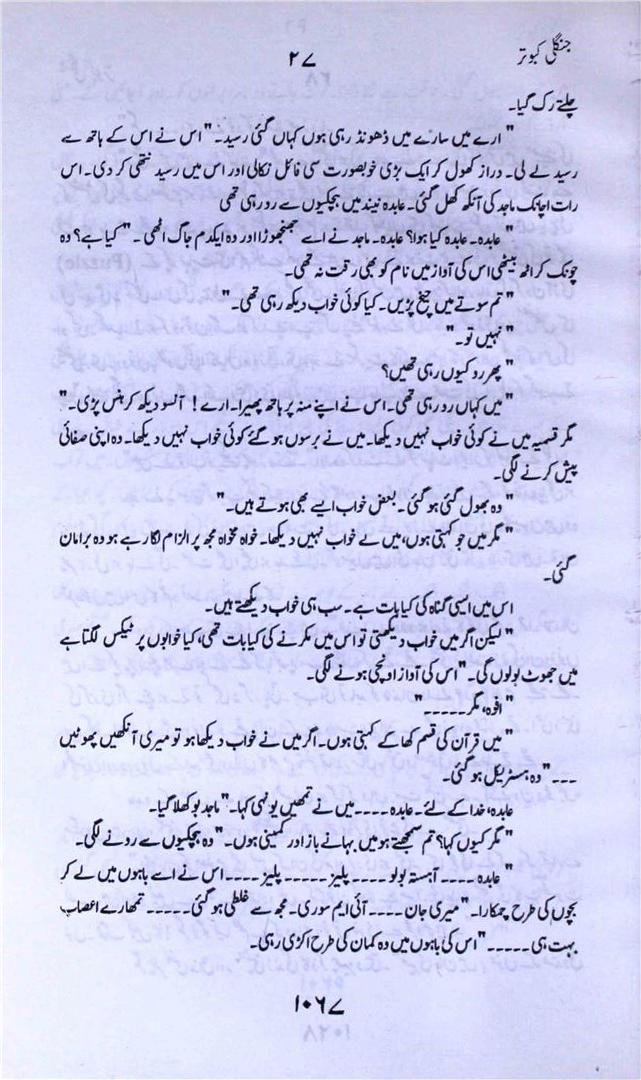 جنگلی کبوتر
۲۷
چلتے رک گیا۔
" ارے میں سارے میں ڈھونڈ رہی ہوں کہاں گئی رسید۔" اس نے اس کے ہاتھ سے
رسید لے لی۔ دراز کھول کر ایک بڑی خوبصورت سی فائل نکالی اور اس میں رسید نتھی کر دی۔ اس
رات اچانک ماجد کی آنکھ کھل گئی۔ عابدہ نیند میں ہچکیوں سے رو رہی تھی
"عابدہ۔ عابدہ کیا ہوا؟ عابدہ۔ ماجد نے اسے جھنجھوڑا اور وہ ایکدم جاگ اٹھی۔ "کیا ہے؟ وہ
چونک کر اٹھ بیٹھی اس کی آواز میں نام کو بھی رقت نہ تھی۔
" تم سوتے میں چیخ پڑیں۔ کیا کوئی خواب دیکھ رہی تھی۔"
"نہیں تو۔"
"پھر رو کیوں رہی تھیں؟
"میں کہاں رو رہی تھی۔ اس نے اپنے منہ پر ہاتھ پھیرا۔ ارے! آنسو دیکھ کر ہنس پڑی۔"
مگر قسمیہ میں نے کوئی خواب نہیں دیکھا۔ میں نے برسوں ہو گئے کوئی خواب نہیں دیکھا۔ وہ اپنی صفائی
پیش کرنے لگی۔
وہ بھول گئی ہو گئی۔ بعض خواب ایسے بھی ہوتے ہیں۔"
" مگر میں جو کہتی ہوں، میں نے خواب نہیں دیکھا۔ خواہ مخواہ مجھ پر الزام لگا رہے ہو وہ برا مان
گئی۔
اس میں ایسی گناہ کی کیا بات ہے۔ سب ہی خواب دیکھتے ہیں۔
" لیکن اگر میں خواب دیکھتی تو اس میں مکرنے کی کیا بات تھی، کیا خوابوں پر ٹیکس لگتا ہے
میں جھوٹ بولوں گی۔" اس کی آواز اونچی ہونے لگی۔
"افوہ، مگر ۔۔۔۔۔"
"میں قرآن کی قسم کھا کے کہتی ہوں۔ اگر میں نے خواب دیکھا ہو تو میری آنکھیں پھوٹیں
۔۔۔" وہ ہسٹریل ہو گئی۔
عابدہ، خدا کے لئے۔ عابدہ ۔۔۔۔ میں نے تمھیں یونہی کہا۔" ماجد بوکھلا گیا۔
"مگر کیوں کہا؟ تم سمجھتے ہو میں بہانے باز اور کمینی ہوں۔" وہ ہچکیوں سے رونے لگی۔
"عابدہ ۔۔۔۔ آہستہ بولو ۔۔۔۔ پلیز ۔۔۔۔۔ پلیز ۔۔۔۔ اس نے اسے باہوں میں لے کر
بچوں کی طرح چمکارا۔ "میری جان ۔۔۔۔ آئی ایم سوری۔ مجھ سے غلطی ہو گئی ۔۔۔۔۔ تمھارے اعصاب
بہت ہی ۔۔۔۔۔" اس کی باہوں میں وہ کمان کی طرح اکڑی رہی۔
۱۰۶۷